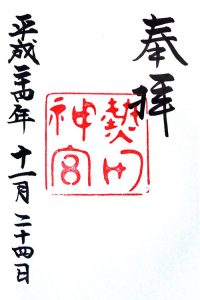 奉拝
熱田神宮
平成二十四年 十一月 二十四日